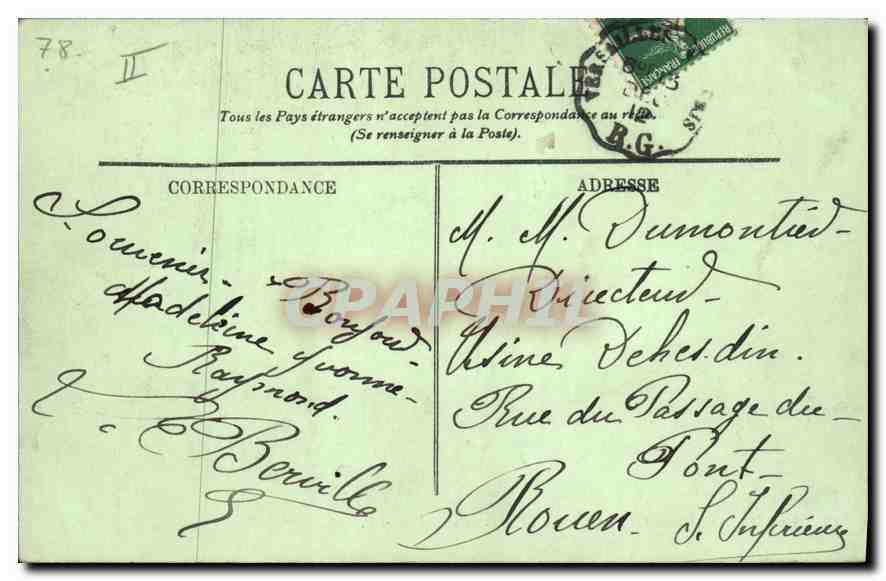 78.
II
CARTE POSTALE
Tous les Pays étrangers n'acceptent pas la Correspondance au recto.
(Se renseigner à la Poste).
RÉPUBLIQUE FRANÇAISE
VERSAILLES
R.G.
CORRESPONDANCE
Souvenir
Bonjour
Madeleine Yvonne
Raymond.
Berville
ADRESSE
M. M. Dumontier
Directeur
Usine Dehesdin.
Rue du Passage du
Pont
Rouen. S. Inférieure
CPAPHIL